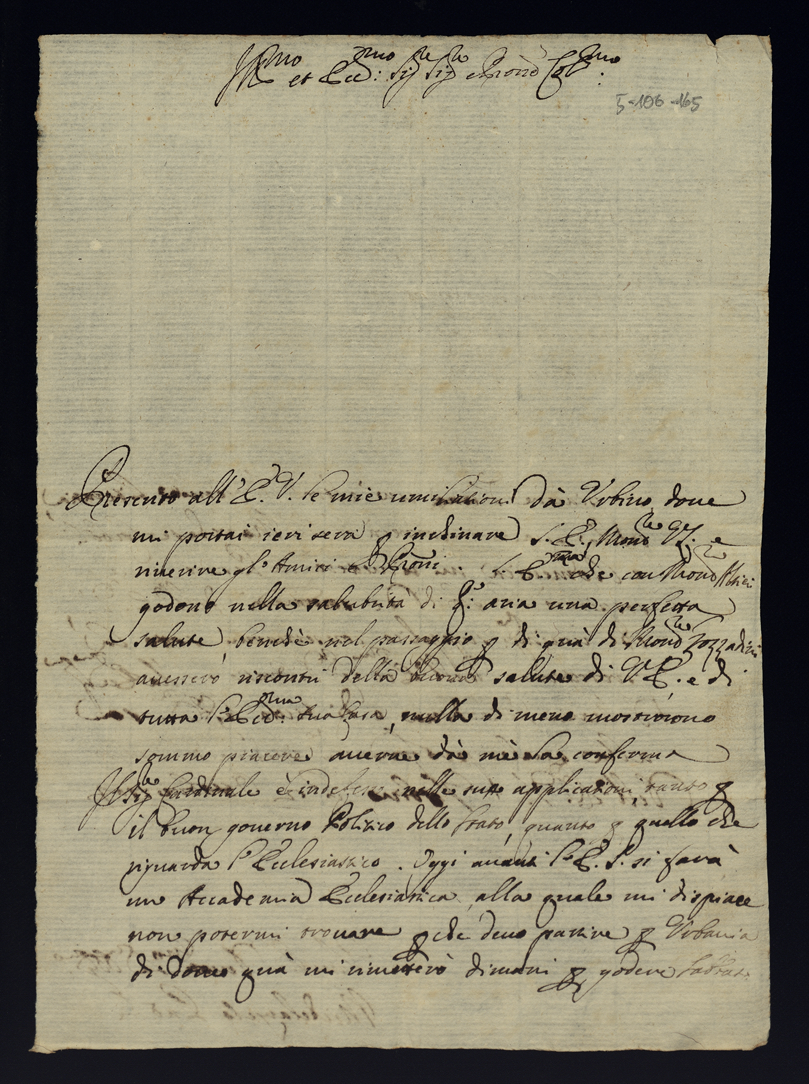 Ill.mo et Ecc.mo Sig.re Sig.re e Prõne Col.mo
5-106-165
Presento all'E. V. le mie umiliationi dà Urbino dove
mi portai ieri sera p inchinare S. E. Mons.re e
riverire gl'Amici e Pr̃oni. S. E. che con Mons.re
godono nella salubrità di q.ta aria una perfetta
salute, benchè nel passaggio p di quà di Mons.re Gozzadini
avessero riscontri della buona salute di V. E. e di
tutta l'Ecc.ma sua Casa, nulla di meno mostrorono
sommo piacere averne dà mè la conferma
Il Sig.re Cardinale è indefesso nelle sue applicationi tanto p
il buon governo Politico dello stato, quanto p quello che
riguarda l'Ecclesiastico. Oggi avanti l'E. S. si farà
un Accademia Ecclesiastica, alla quale mi dispiace
non potermi trovare p che devo partire p Urbania
di dove quà mi rimetterò dimani p godere